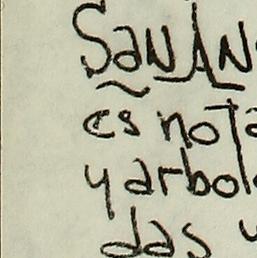 SaNAN
es nota
y arbol
das